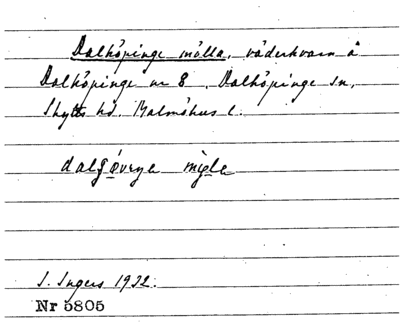 Dalköpinge mölla, väderkvarn å
Dalköpinge nr 8. Dalköpinge sn,
Skytts hd. Malmöhus l.
mỳla
I. Ingers 1932.
Nr 5805